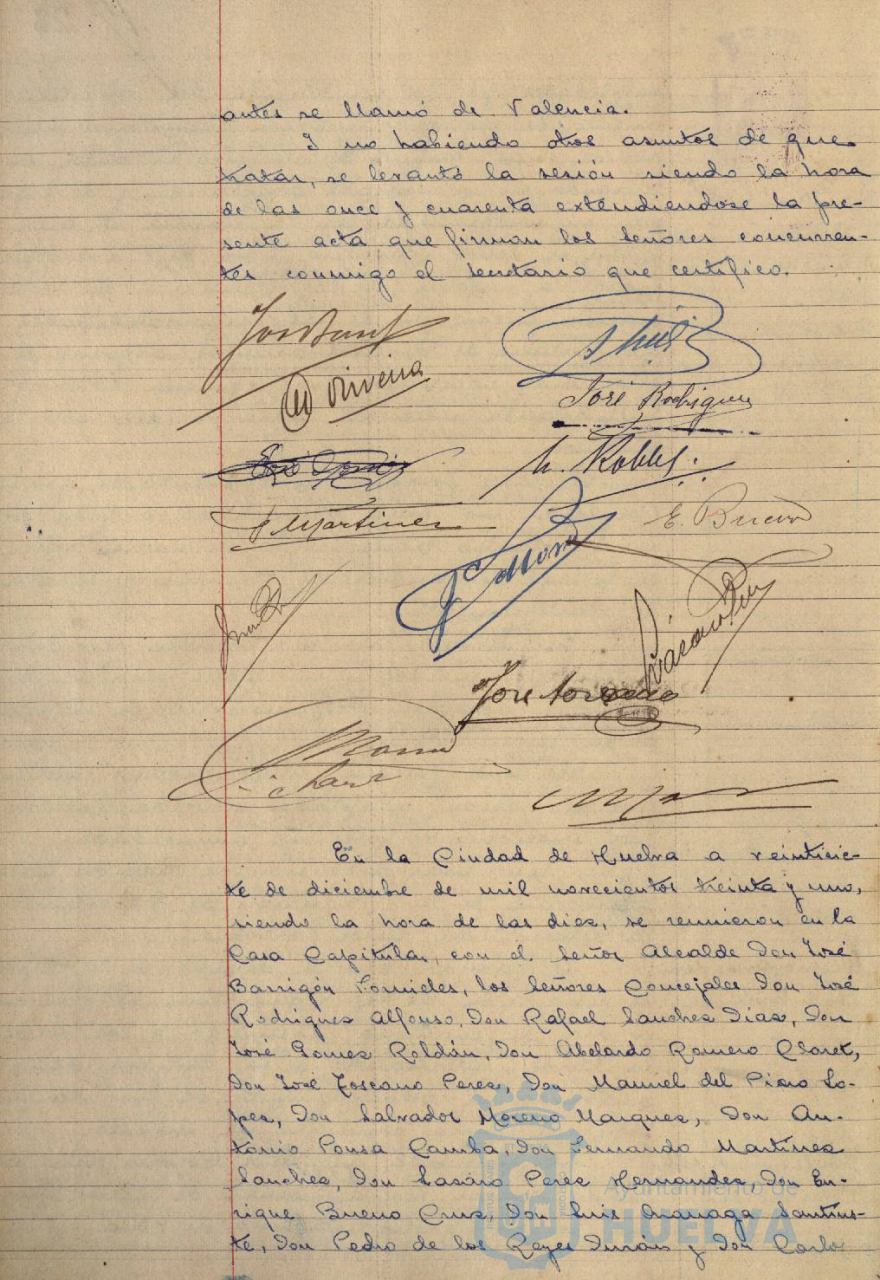 antes se llamó de Valencia.
Y no habiendo otros asuntos de que
tratar, se levantó la sesión siendo la hora
de las once y cuarenta extendiendose la pre-
sente acta que firman los Señores concurren-
tes conmigo el secretario que certifico.
Oliveira
José Rodriguez
Robles.
F Martinez
E. Bueno
José
En la Ciudad de Huelva a veintisie-
te de diciembre de mil novecientos treinta y uno,
siendo la hora de las diez, se reunieron en la
Casa Capitular, con el Señor Alcalde Don José
Barrigón Fornieles, los Señores Concejales Don José
Rodrigues Alfonso, Don Rafael Sanches Dias, Don
José Gomes Roldán, Don Abelardo Romero Claret,
Don José Toscano Peres, Don Manuel del Pino Lo-
pes, Don Salvador Moreno Marques, Don An-
tonio Ponsa Camba, Don Fernando Martínes
Sanches, Don Lasaro Peres Hernandes, Don En-
rique Bueno Crus, Don Luis Aranaga Santius-
te, Don Pedro de los Reyes Durán y Don Carlos
Ayuntamiento de
HUELVA